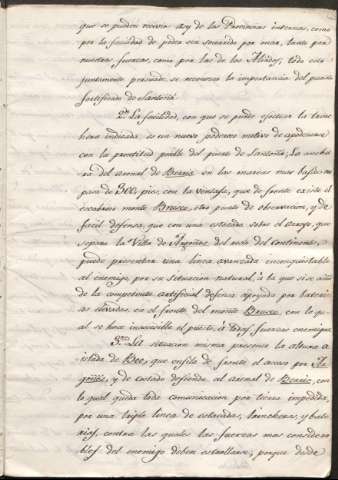 que se puden recivir asy de las Provincias internas, como
por la facilidad de poder ser socorrido por mar, tanto por
nuestras fuerzas, como por las de los Aliados; todo esto
juntamente provado se reconoce la importancia del punto
fortificado de Santoña
2º La facilidad, con que se puede efectuar la trin
chera indicada es un nuevo poderoso motivo de apoderarse
con la prontitud posible del punto de Santoña. La anchu
ra del arenal de Berria en las mareas mas bajas no
pasa de 300 pies, con la ventaja, que de frente existe el
escabroso monte Brusco, otro punto de observacion, y de
facil defensa, que con una estacada sobre el arroyo, que
separa la Villa de Argoños del resto del continente,
puede presentar una linea avanzada inconquistable
al enemigo, por su situacion natural, a la que si se añe
de la competente artificial defensa apoyada por bateri
as elevadas, en el frente del monte Brusco, con lo qu
al se hace inaccesible el punto, a las fuerzas enemigas
3º La situacion misma presenta la altura a
islada de Beo, que enfila de frente el acceso por Ar
goños, y de costado defiende al arenal de Berria, con
lo qual queda toda comunicacion por tierra impedida,
por una triple linea de estacadas, trincheras, y bate
rias, contra las quales las fuerzas mas considera
bles del enemigo deben estrellarse; porque desde